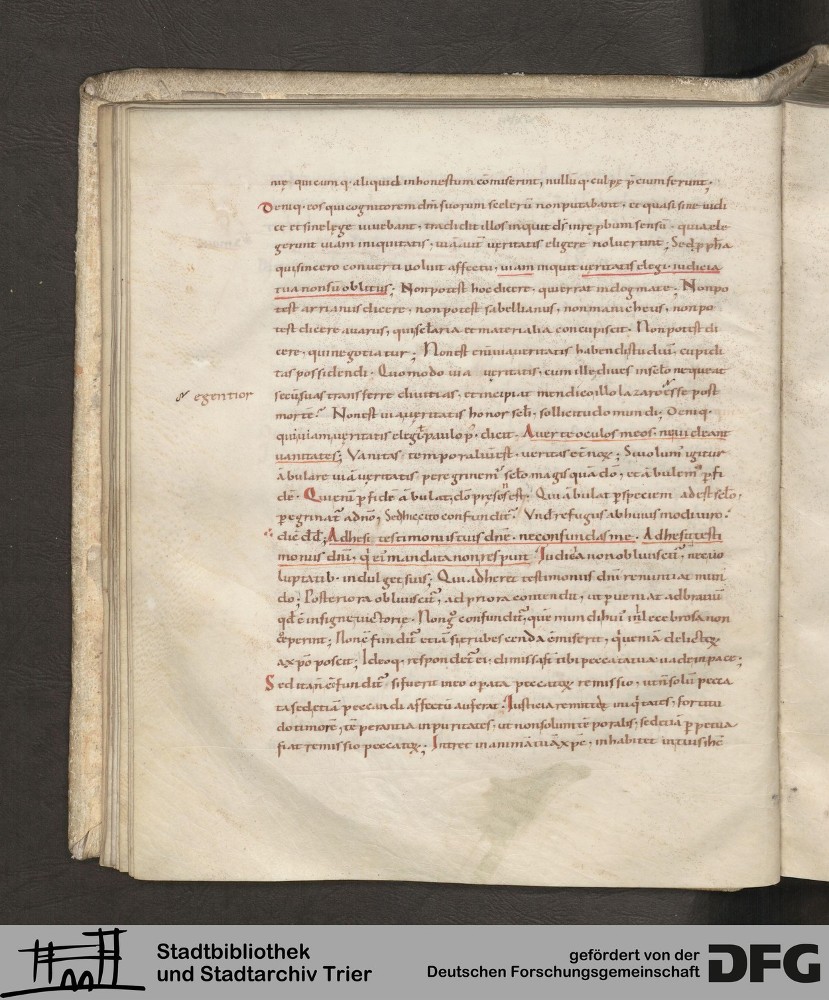 nię quicum q· aliquid inhonestum cōmiserint, nullū q· culpę p̄cium ferunt·
Deniq· eos qui cognitorem dm̄ suorum scelerū non putabant· et quasi sine iudi
ce et sine lege uiuebant, tradidit illos inquit ds̄ in reprobum sensū· quia ele
gerunt uiam iniquitatis; uiā aut̄ ueritatis eligere noluerunt; Sed ppha
qui sincero conuerti uoluit affectu, uiam inquit ueritatis elegi· iudicia
tua non sū oblitus; Non potest hoc dicere· qui errat in dogmate; Non po
test arrianus dicere· non potest sabellianus, non manicheus, non po
test dicere auarus, qui sclaria et materialia concupiscit· Non potest di
cere, qui negotiatur; Non est enī uia ueritatis habendi studiū, cupidi
tas possidendi· Quomodo uia ueritatis, cum ille diues in sclo nequeat
secū suas transferre diuitias, et incipiat mendico illo lazaro esse post
egentior
morte· Non est uia ueritatis honor scli, sollicitudo mundi; Deniq·
qui uiam ueritatis elegit paulo p· dicit· Auerte oculos meos· ne uideant
uanitates; Vanitas temporaliū est· ueritas et̄nox; Si uolum igitur
ābulare uiā ueritatis peregrinem sclo magis quā dō, et ābulem p fi
dē· Qui enī p fidē ābulat, dō p̄sens est; Qui ābulat p speciem adest sclo,
peregrinat̄ a dn̄o, Sed nec ito confundit̄· Vnd refugus ab huius modi uiro·
dic̄ dd̄; Adhesi testimoniis tuis dn̄e· ne confundas me· Adhesit testi
moniis dn̄i, qi ei mandata non respuit Iudicia non obliuiscit̄, nec uo
luptatib· indulget suis; Qui adheret testimoniis dn̄i renuntiat mun
do; Posteriora obliuiscit̄, ad priora contendit, ut pueniat ad brauiū
qd̄ ē insigne uictorię· Non g̊ confundit̄, quē mundi huiꝰ inlecebrosa non
cęperint; Non c̄fundit̄ etiā si erubescenda cōmiserit, qi ueniā delictoꝝ
a xp̄o poscit; Ideoq· respondet̄ ei· dimissa st̄ tibi peccata tua uade in pace;
Sed ita n̄ c̄fundit̄ si fuerit in eo parata peccatoꝝ remissio, ut n̄ solū pecca
ta sed etiā peccandi affectū auferat· Iusticia remittat iniquitates, fortitu
do timorē, tēperantia inpuritates, ut non solum tēporalis, sed etiā ppetua
fiat remissio peccatoꝝ; Intret in animā tuā xp̄c, inhabitet in tuis ihc̄
Stadtbibliothek
und Stadtarchiv Trier
gefördert von der
Deutschen Forschungsgemeinschaft
DFG